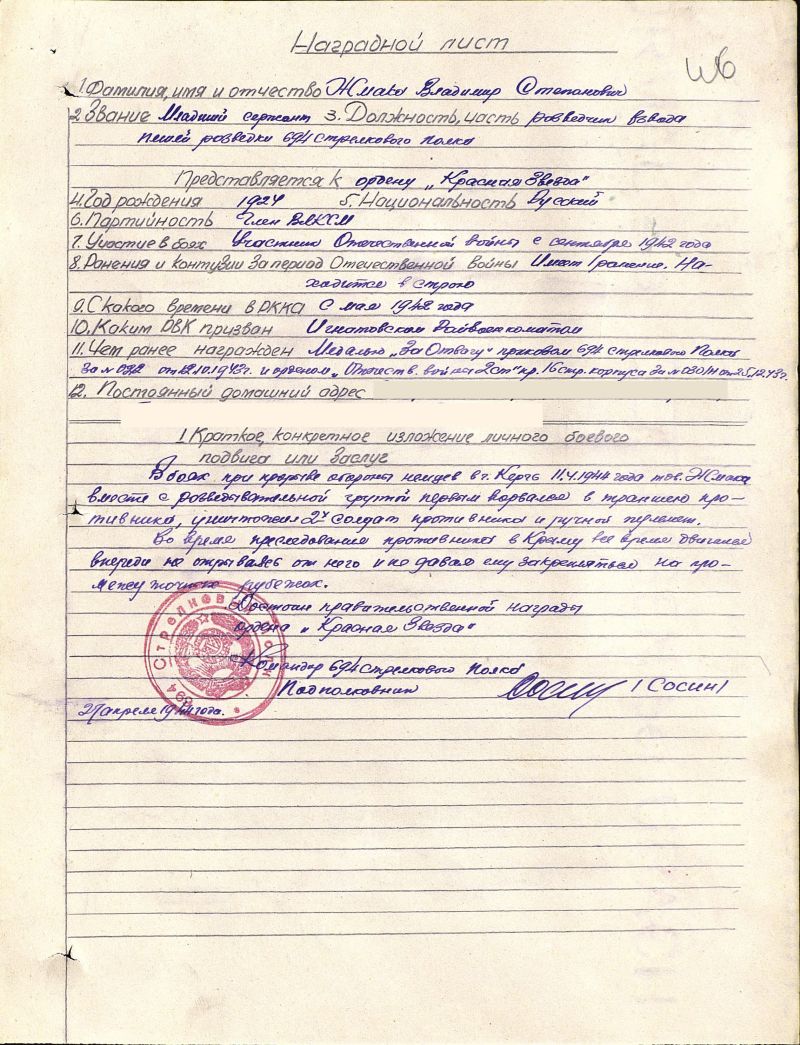 Наградной лист
1. Фамилия, имя и отчество Жмака Владимир Степанович
2. Звание Младший сержант 3. Должность, часть разведчик взвода
пешей разведки 694 Стрелкового полка
Представляется к ордену „Красная Звезда"
4. Год рождения 1924 5. Национальность Русский
6. Партийность Член ВЛКСМ
7. Участие в боях Участник Отечественной войны с сентября 1942 года
8. Ранения и контузии за период Отечественной войны Имеет 1 ранение. На-
ходится в строю
9. С какого времени в РККА С мая 1942 года
10. Каким РВК призван Игнатовским Райвоенкоматом
11. Чем ранее награжден Медалью „За Отвагу" приказом 694 стрелкового Полка
За № 032 от 12.10.1943г. и орденом „Отечеств. война 2 ст" пр. 16 стр. корпуса За № 030/н от 25.12.43г.
12. Постоянный домашний адрес
1. Краткое, конкретное изложение личного боевого
подвига или заслуг
В боях при прорыве обороны немцев в г. Керчь 11.4.1944 года тов. Жмака
вместе с разведывательной группой первым ворвался в траншею про-
тивника, уничтожил 2х солдат противника и ручной пулемет.
Во время преследования противника в Крыму все время двигался
впереди не отрываясь от него и не давая ему закрепляться на про-
межуточных рубежах.
Достоин правительственной награды
ордена „Красная Звезда"
Командир 694 Стрелкового Полка
Подполковник (Сосин)
27 апреля 1944 года.
694 Стрелковый полк